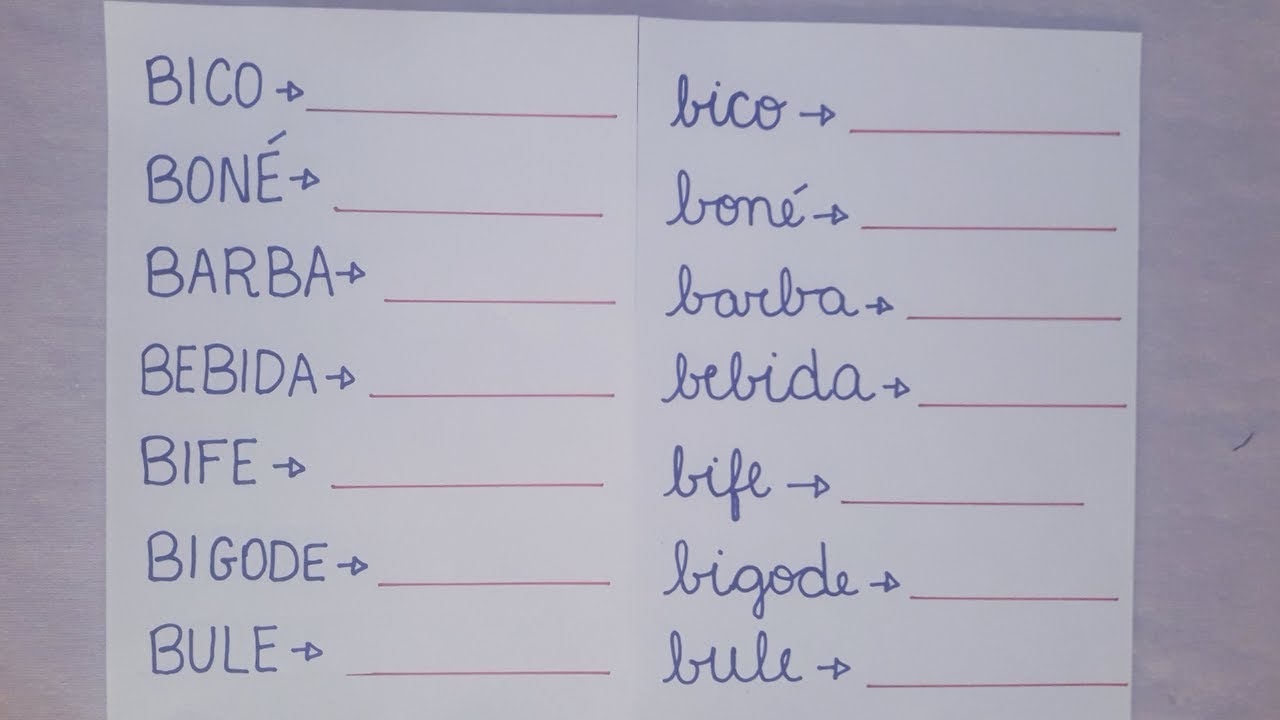 BICO → ____________
BONÉ → ____________
BARBA → ____________
BEBIDA → ____________
BIFE → ____________
BIGODE → ____________
BULE → ____________
bico → ____________
boné → ____________
barba → ____________
bebida → ____________
bife → ____________
bigode → ____________
bule → ____________